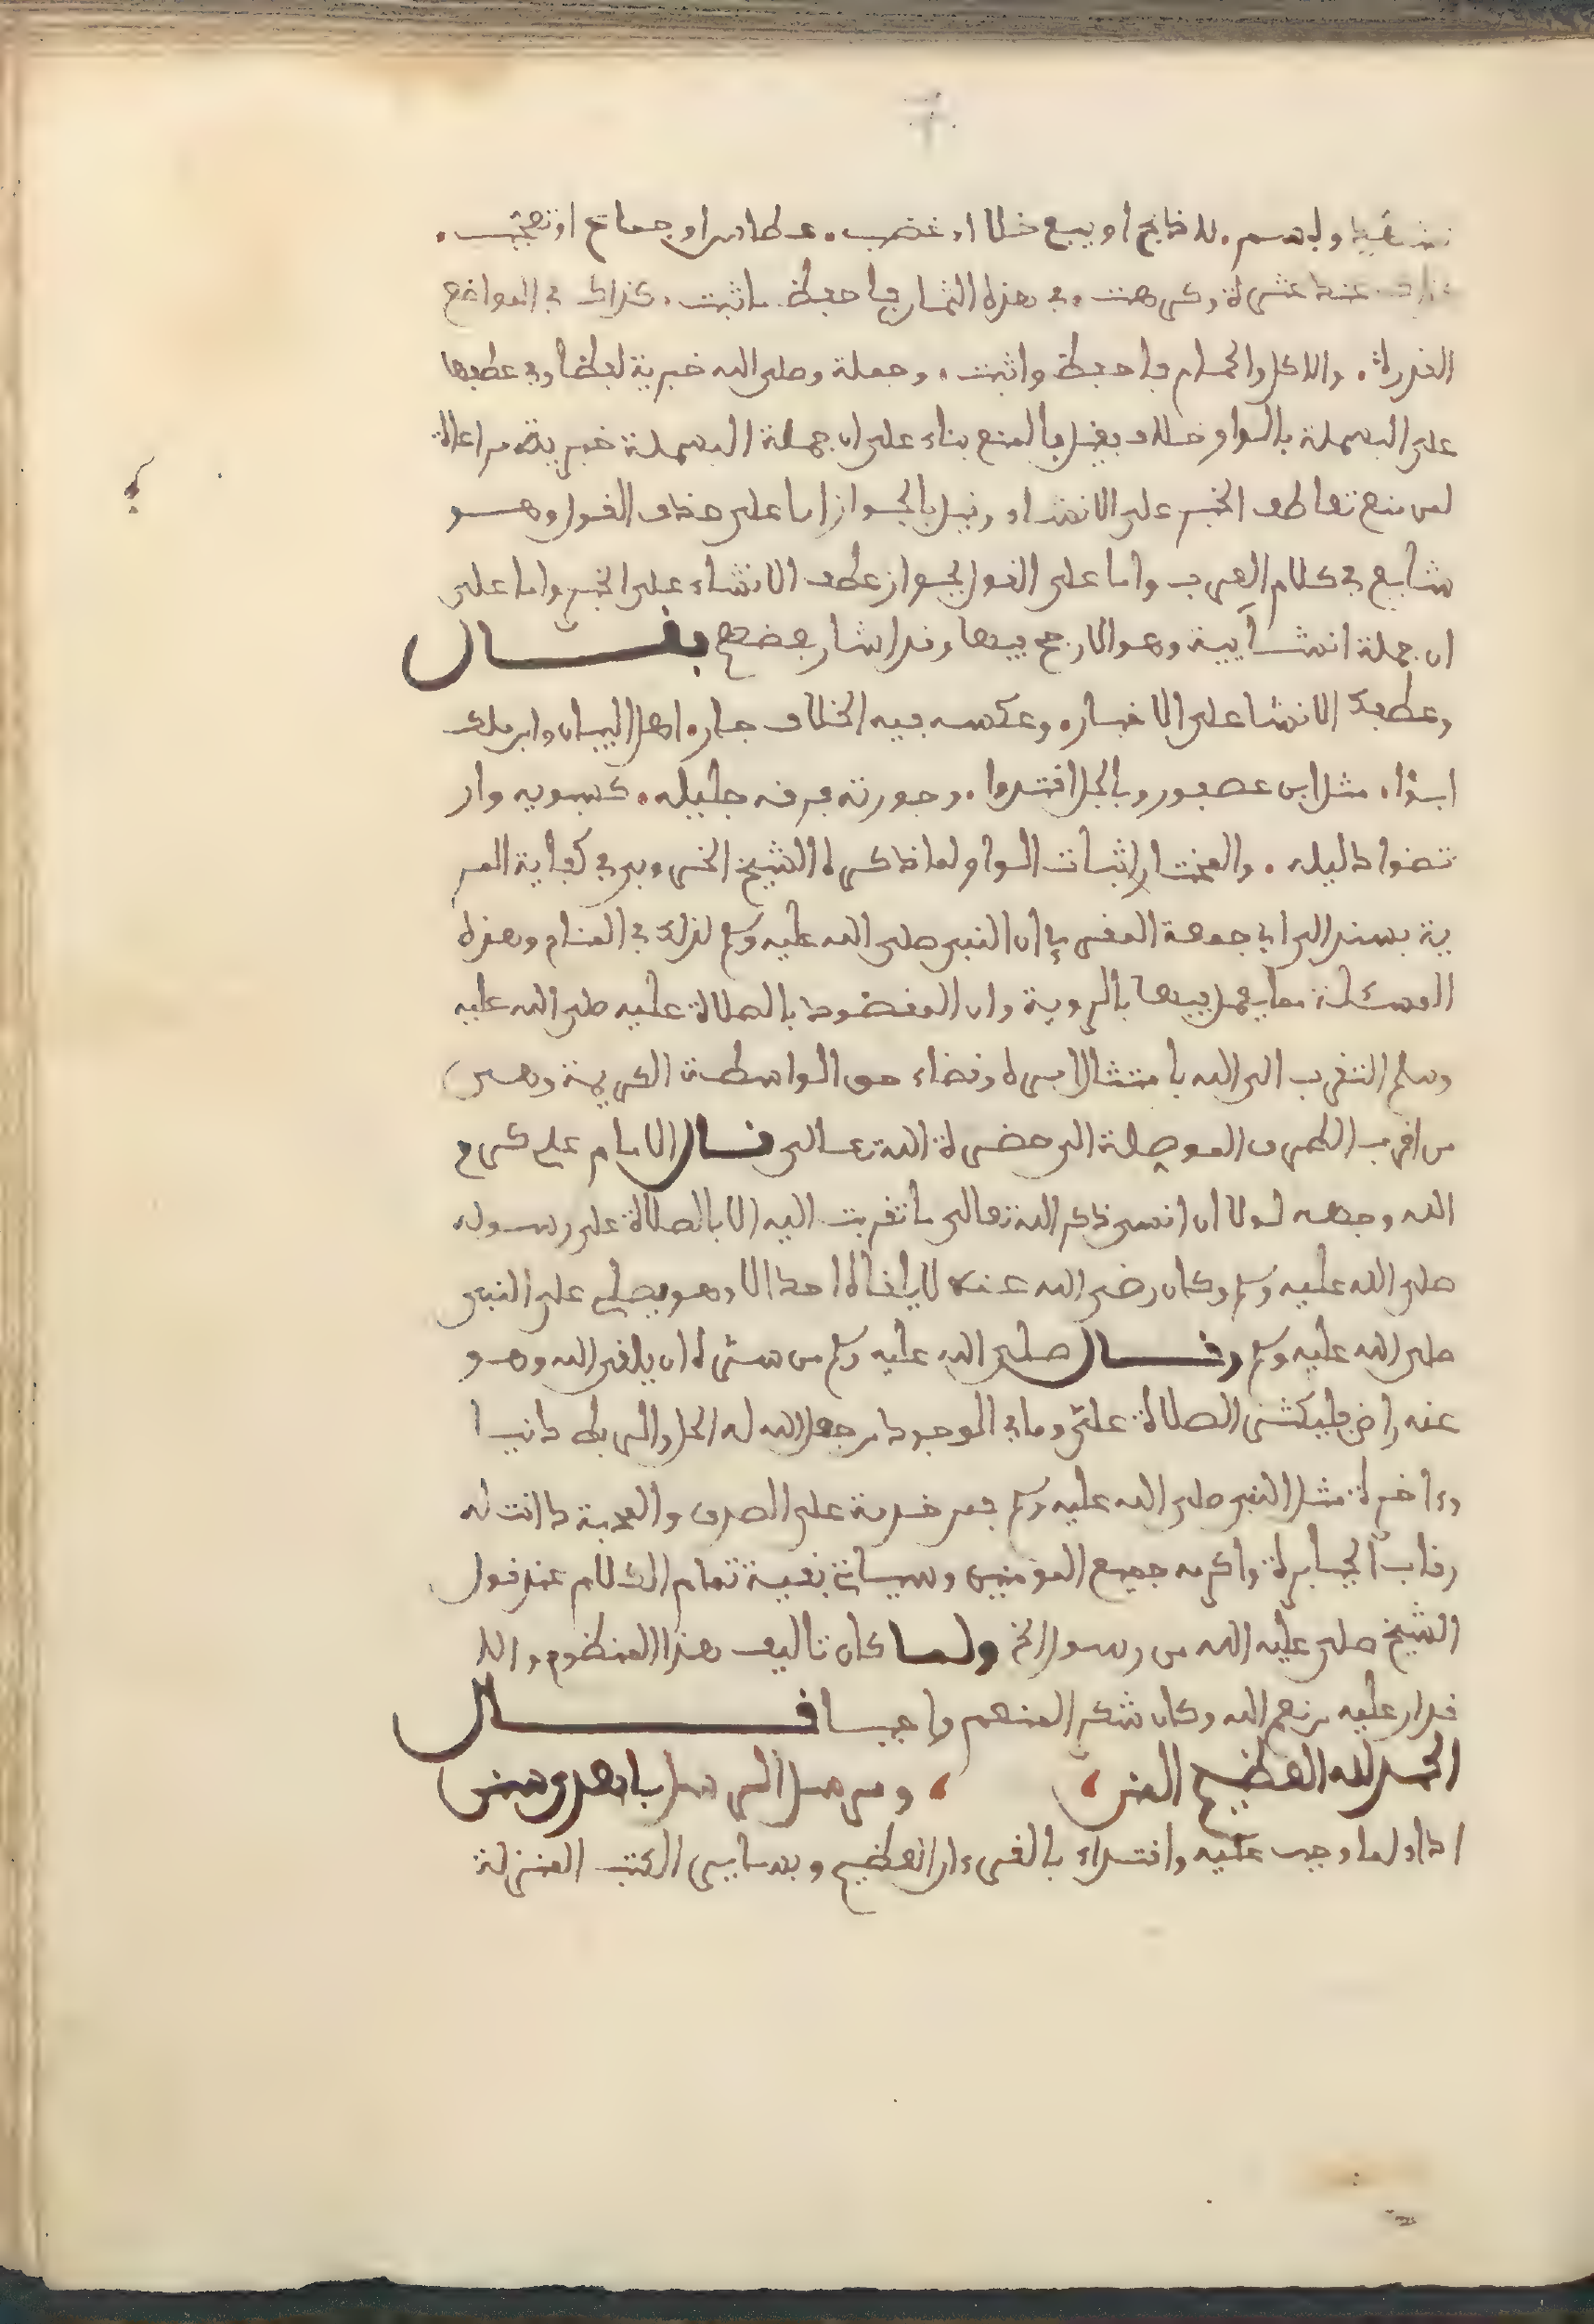 ولا سم. للذابح او بيع خلاا او غضب. عطاس او جماع او تعجب.
عشرة وكرهت. في هذه الثمان فاحفظ ما ثبت. كذاك في المواضع
القذرة. والاكل والحمام فاحفظ واثبت. وجملة وصلى الله خبرية لفظا وفي عطفها
على البسملة بالواو خلاف فقيل بالمنع بناء على ان جملة البسملة خبرية مراعاة
لمن منع تعاطف الخبر على الانشاء وقيل بالجواز اما على حذف القول وهو
شايع في كلام العرب واما على القول بجواز عطف الانشاء على الخبر واما على
ان جملة انشاءيية وهو الارجح فيها وقد اشار بعضهم فقال
وعطفك الانشا على الاخبار. وعكسه فيه الخلاف جار. اهل البيان وابن ملك
ابوا. مثل ابن عصفور وبالجل اقتدوا. وجوزته فرفه جليله. كسبويه وار
تضوا دليله. والمختار اثبات الواو لما ذكره الشيخ الخروبي في كفاية المر
ية بسند الى ابي جمعة المقري ان النبي صلى الله عليه وسلم لذلك في المنام وهذه
المسئلة مما يعمل فيها بالروية وان المقصود بالصلاة عليه صلى الله عليه
وسلم التقرب الى الله بامتثال امره وقضاء حق الواسطة الكريمة وهي
من اقرب الطرق الموصلة الى حضرة الله تعالى قال الامام علي كرم
الله وجهه لولا ان انسى ذكر الله تعالى ما تقربت اليه الا بالصلاة على رسوله
صلى الله عليه وسلم وكان رضي الله عنه لا يلقاه احد الا وهو يصلي على النبي
صلى الله عليه وسلم وقال صلى الله عليه وسلم من سره ان يلقى الله وهو
عنه راض فليكثر الصلاة علي وما في الوجود من جعل الله له الحل والربط دنيا
وءاخرة مثل النبي صلى الله عليه وسلم فمن خدمه على الصدق والمحبة دانت له
رقاب الجبابرة واكرمه جميع المؤمنين وسياتي بقية تمام الكلام عند قول
الشيخ صلى عليه الله من رسول الخ ولما كان تاليف هذا المنظوم والا
قدار عليه من نعم الله وكان شكر المنعم واجبا قال
الحمد لله العظيم المن ، ، ومرسل الرسل باهدى سنن
اداء لما وجب عليه واقتداء بالقرءان العظيم وبساير الكتب المنزلة